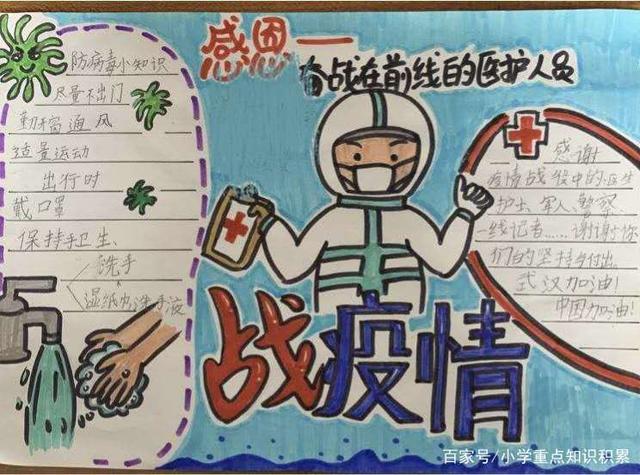 感恩一
奋战在前线的医护人员
防病毒小知识
尽量不出门
勤稍通风
适量运动
出行时
戴口罩
保持手卫生、
洗手
湿纸巾洗手液
感谢
疫情战役中的医生
护士、军人、警察
一线记者……谢谢你
们的坚持付出
武汉加油!
中国加油!
战疫情
百家号/小学重点知识积累